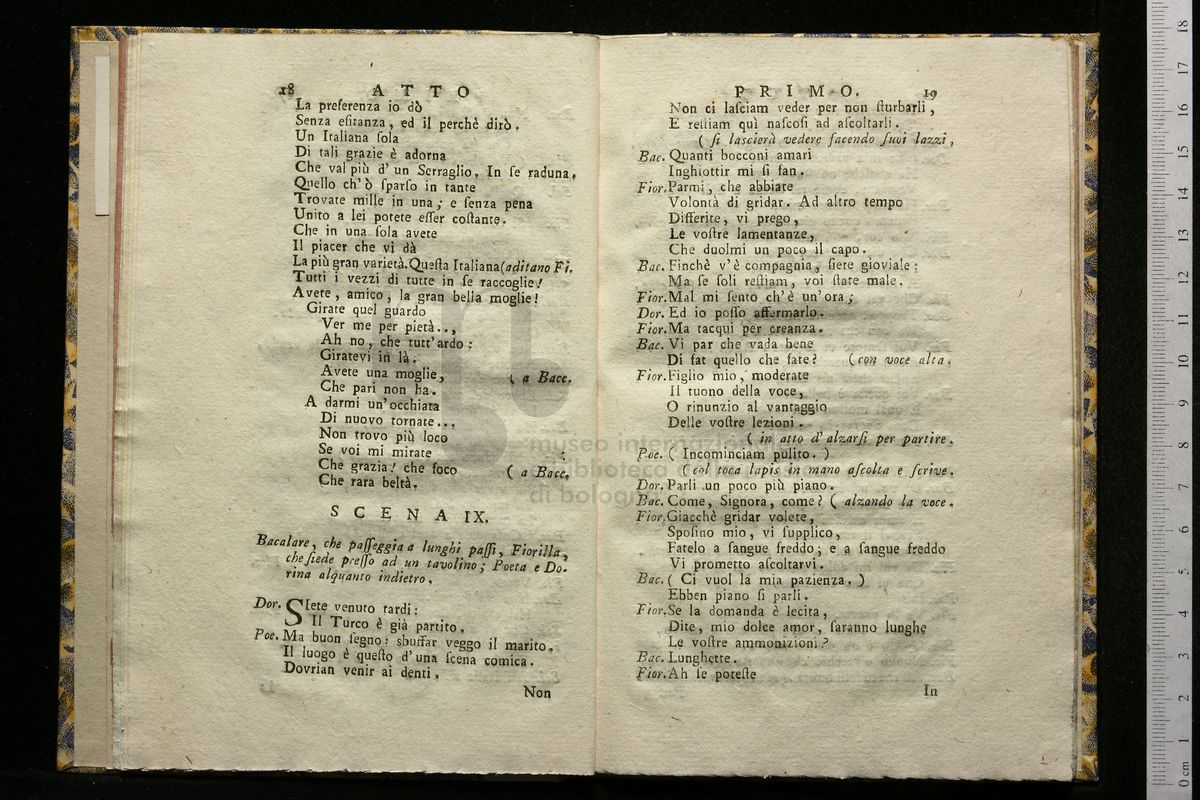 18 ATTO
La preferenza io dò
Senza eſitanza, ed il perchè dirò.
Un Italiana ſola
Di tali grazie è adorna
Che val più d' un Serraglio. In ſe raduna,
Quello ch' ò ſparſo in tante
Trovate mille in una; e ſenza pena
Unito a lei potete eſſer coſtante.
Che in una ſola avete
Il piacer che vi dà
La più gran varietà. Queſta Italiana (aditano Fi.
Tutti i vezzi di tutte in ſe raccoglie!
Avete, amico, la gran bella moglie!
Girate quel guardo
Ver me per pietà...
Ah no, che tutt' ardo:
Giratevi in là.
Avete una moglie, ( a Bacc.
Che pari non ha.
A darmi un' occhiata
Di nuovo tornate...
Non trovo più loco
Se voi mi mirate
Che grazia! che foco ( a Bacc.
Che rara beltà.
SCENA IX.
Bacalare, che paſſeggia a lunghi paſſi, Fiorilla,
che ſiede preſſo ad un tavolino; Poeta e Do-
rina alquanto indietro.
Dor. SIete venuto tardi:
Il Turco è già partito.
Poe. Ma buon ſegno: sbuffar veggo il marito.
Il luogo è queſto d' una ſcena comica.
Dovrian venir ai denti,
Non
PRIMO. 19
Non ci laſciam veder per non ſturbarli,
E reſtiam quì naſcoſi ad aſcoltarli.
( ſi lascierà vedere facendo ſuoi lazzi,
Bac. Quanti bocconi amari
Inghiottir mi ſi fan.
Fior. Parmi, che abbiate
Volontà di gridar. Ad altro tempo
Differite, vi prego,
Le voſtre lamentanze,
Che duolmi un poco il capo.
Bac. Finchè v' è compagnia, ſiete gioviale:
Ma ſe ſoli reſtiam, voi ſtate male.
Fior. Mal mi ſento ch' è un' ora;
Dor. Ed io poſſo affermarlo.
Fior. Ma tacqui per creanza.
Bac. Vi par che vada bene
Di fat quello che fate? (con voce alta.
Fior. Figlio mio, moderate
Il tuono della voce,
O rinunzio al vantaggio
Delle voſtre lezioni.
( in atto d' alzarſi per partire.
Poe. ( Incominciam pulito. )
( col toca lapis in mano aſcolta e ſcrive.
Dor. Parli un poco più piano.
Bac. Come, Signora, come? ( alzando la voce.
Fior. Giacchè gridar volete,
Spoſino mio, vi ſupplico,
Fatelo a ſangue freddo; e a ſangue freddo
Vi prometto aſcoltarvi.
Bac. ( Ci vuol la mia pazienza. )
Ebben piano ſi parli.
Fior. Se la domanda è lecita,
Dite, mio dolce amor, ſaranno lunghe
Le voſtre ammonizioni?
Bac. Lunghette.
Fior. Ah ſe poteſte
In
museo internazion
biblioteca
di bologn
0 cm 1 2 3 4 5 6 7 8 9 10 11 12 13 14 15 16 17 18